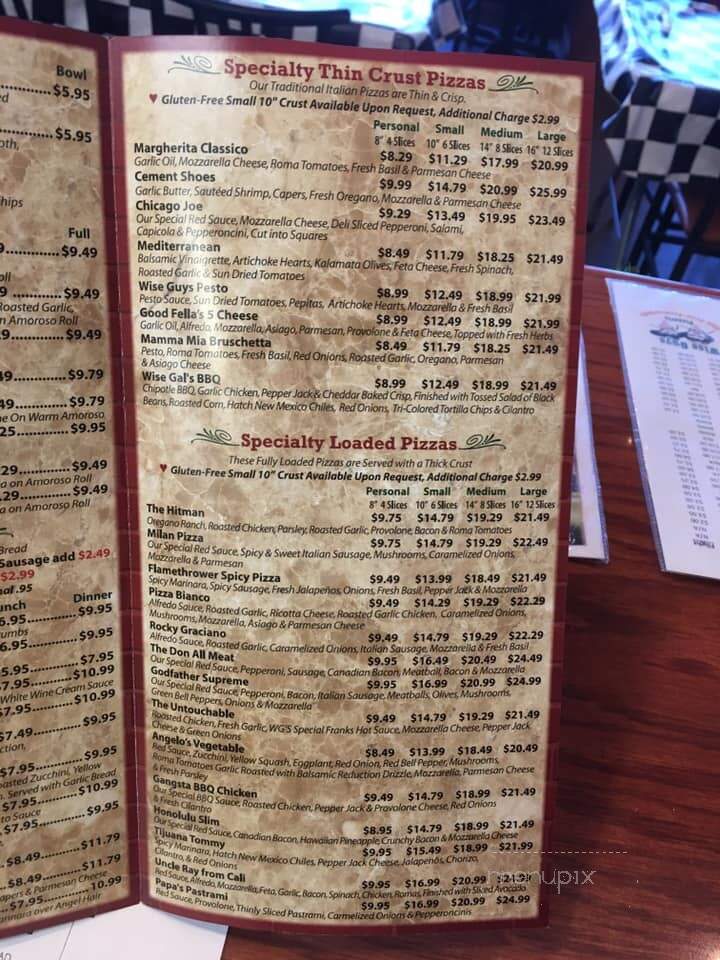 Bowl
$5.95
$5.95
oth,
hips
Full
$9.49
oll
$9.49
Roasted Garlic,
n Amoroso Roll
$9.49
$9.79
$9.79
e On Warm Amoroso
$9.95
$9.49
a on Amoroso Roll
$9.49
a on Amoroso Roll
Bread
Sausage add $2.49
$2.99
.95
unch Dinner
6.95 $9.95
umbs
6.95 $9.95
5.95 $7.95
$7.95 $10.99
White Wine Cream Sauce
$7.95 $10.99
$7.49 $9.95
ction,
$7.95 $9.95
oasted Zucchini, Yellow
n. Served with Garlic Bread
$7.95 $10.99
to Sauce
$7.95 $9.95
$8.49 $11.79
$8.49 $11.79
apers & Parmesan Cheese
$7.95 10.99
arinara over Angel Hair
Specialty Thin Crust Pizzas
Our Traditional Italian Pizzas are Thin & Crisp.
♥ Gluten-Free Small 10" Crust Available Upon Request, Additional Charge $2.99
Personal Small Medium Large
8" 4 Slices 10" 6 Slices 14" 8 Slices 16" 12 Slices
Margherita Classico $8.29 $11.29 $17.99 $20.99
Garlic Oil, Mozzarella Cheese, Roma Tomatoes, Fresh Basil & Parmesan Cheese
Cement Shoes $9.99 $14.79 $20.99 $25.99
Garlic Butter, Sautéed Shrimp, Capers, Fresh Oregano, Mozzarella & Parmesan Cheese
Chicago Joe $9.29 $13.49 $19.95 $23.49
Our Special Red Sauce, Mozzarella Cheese, Deli Sliced Pepperoni, Salami,
Capicola & Pepperoncini, Cut into Squares
Mediterranean $8.49 $11.79 $18.25 $21.49
Balsamic Vinaigrette, Artichoke Hearts, Kalamata Olives, Feta Cheese, Fresh Spinach,
Roasted Garlic & Sun Dried Tomatoes
Wise Guys Pesto $8.99 $12.49 $18.99 $21.99
Pesto Sauce, Sun Dried Tomatoes, Pepitas, Artichoke Hearts, Mozzarella & Fresh Basil
Good Fella's 5 Cheese $8.99 $12.49 $18.99 $21.99
Garlic Oil, Alfredo, Mozzarella, Asiago, Parmesan, Provolone & Feta Cheese, Topped with Fresh Herbs
Mamma Mia Bruschetta $8.49 $11.79 $18.25 $21.49
Pesto, Roma Tomatoes, Fresh Basil, Red Onions, Roasted Garlic, Oregano, Parmesan
& Asiago Cheese
Wise Gal's BBQ $8.99 $12.49 $18.99 $21.49
Chipotle BBQ, Garlic Chicken, Pepper Jack & Cheddar Baked Crisp, Finished with Tossed Salad of Black
Beans, Roasted Corn, Hatch New Mexico Chiles, Red Onions, Tri-Colored Tortilla Chips & Cilantro
Specialty Loaded Pizzas
These Fully Loaded Pizzas are Served with a Thick Crust
♥ Gluten-Free Small 10" Crust Available Upon Request, Additional Charge $2.99
Personal Small Medium Large
8" 4 Slices 10" 6 Slices 14" 8 Slices 16" 12 Slices
The Hitman $9.75 $14.79 $19.29 $21.49
Oregano Ranch, Roasted Chicken, Parsley, Roasted Garlic, Provolone, Bacon & Roma Tomatoes
Milan Pizza $9.75 $14.79 $19.29 $22.49
Our Special Red Sauce, Spicy & Sweet Italian Sausage, Mushrooms, Caramelized Onions,
Mozzarella & Parmesan
Flamethrower Spicy Pizza $9.49 $13.99 $18.49 $21.49
Spicy Marinara, Spicy Sausage, Fresh Jalapeños, Onions, Fresh Basil, Pepper Jack & Mozzarella
Pizza Bianco $9.49 $14.29 $19.29 $22.29
Alfredo Sauce, Roasted Garlic, Ricotta Cheese, Roasted Garlic Chicken, Caramelized Onions,
Mushrooms, Mozzarella, Asiago & Parmesan Cheese
Rocky Graciano $9.49 $14.79 $19.29 $22.29
Alfredo Sauce, Roasted Garlic, Caramelized Onions, Italian Sausage, Mozzarella & Fresh Basil
The Don All Meat $9.95 $16.49 $20.49 $24.49
Our Special Red Sauce, Pepperoni, Sausage, Canadian Bacon, Meatball, Bacon & Mozzarella
Godfather Supreme $9.95 $16.99 $20.99 $24.99
Our Special Red Sauce, Pepperoni, Bacon, Italian Sausage, Meatballs, Olives, Mushrooms,
Green Bell Peppers, Onions & Mozzarella
The Untouchable $9.49 $14.79 $19.29 $21.49
Roasted Chicken, Fresh Garlic, WG'S Special Franks Hot Sauce, Mozzarella Cheese, Pepper Jack
Cheese & Green Onions
Angelo's Vegetable $8.49 $13.99 $18.49 $20.49
Red Sauce, Zucchini, Yellow Squash, Eggplant, Red Onion, Red Bell Pepper, Mushrooms,
Roma Tomatoes Garlic Roasted with Balsamic Reduction Drizzle, Mozzarella, Parmesan Cheese
& Fresh Parsley
Gangsta BBQ Chicken $9.49 $14.79 $18.99 $21.49
Our Special BBQ Sauce, Roasted Chicken, Pepper Jack & Pravalone Cheese, Red Onions
& Fresh Cilantro
Honolulu Slim $8.95 $14.79 $18.99 $21.49
Our Special Red Sauce, Canadian Bacon, Hawaiian Pineapple, Crunchy Bacon & Mozzarella Cheese
Tijuana Tommy $9.95 $15.49 $18.99 $21.99
Spicy Marinara, Hatch New Mexico Chiles, Pepper Jack Cheese, Jalapeños, Chorizo,
Cilantro, & Red Onions
Uncle Ray from Cali $9.95 $16.99 $20.99
Red Sauce, Alfredo, Mozzarella, Feta, Garlic, Bacon, Spinach, Chicken, Romas, Finished with Sliced Avocado
Papa's Pastrami $9.95 $16.99 $20.99 $24.99
Red Sauce, Provolone, Thinly Sliced Pastrami, Carmelized Onions & Pepperoncinis
menupix